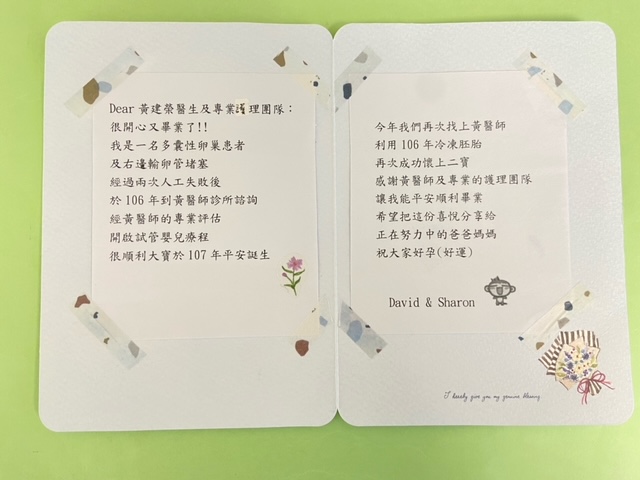 Dear 黃建榮醫生及專業護理團隊：
很開心又畢業了!!
我是一名多囊性卵巢患者
及右邊輸卵管堵塞
經過兩次人工失敗後
於 106 年到黃醫師診所諮詢
經黃醫師的專業評估
開啟試管嬰兒療程
很順利大寶於 107 年平安誕生
今年我們再次找上黃醫師
利用 106 年冷凍胚胎
再次成功懷上二寶
感謝黃醫師及專業的護理團隊
讓我能平安順利畢業
希望把這份喜悅分享給
正在努力中的爸爸媽媽
祝大家好孕(好運)
David & Sharon
I heartly give you my genuine blessing